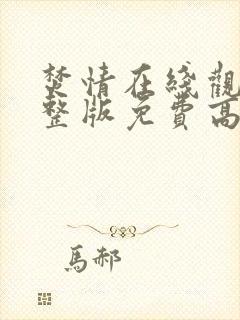 焚情在綫觀
整版免費高
馬郝